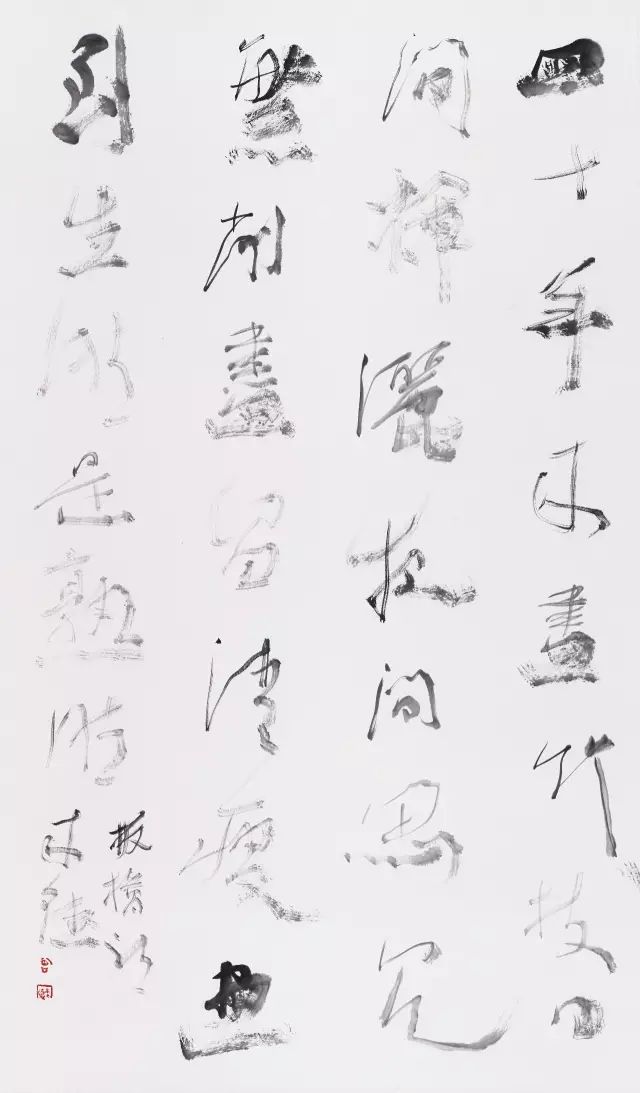 四十年来畫竹枝日
间揮灑夜间思冗
繁削盡留清瘦畫
到生时是熟时
板橋詩